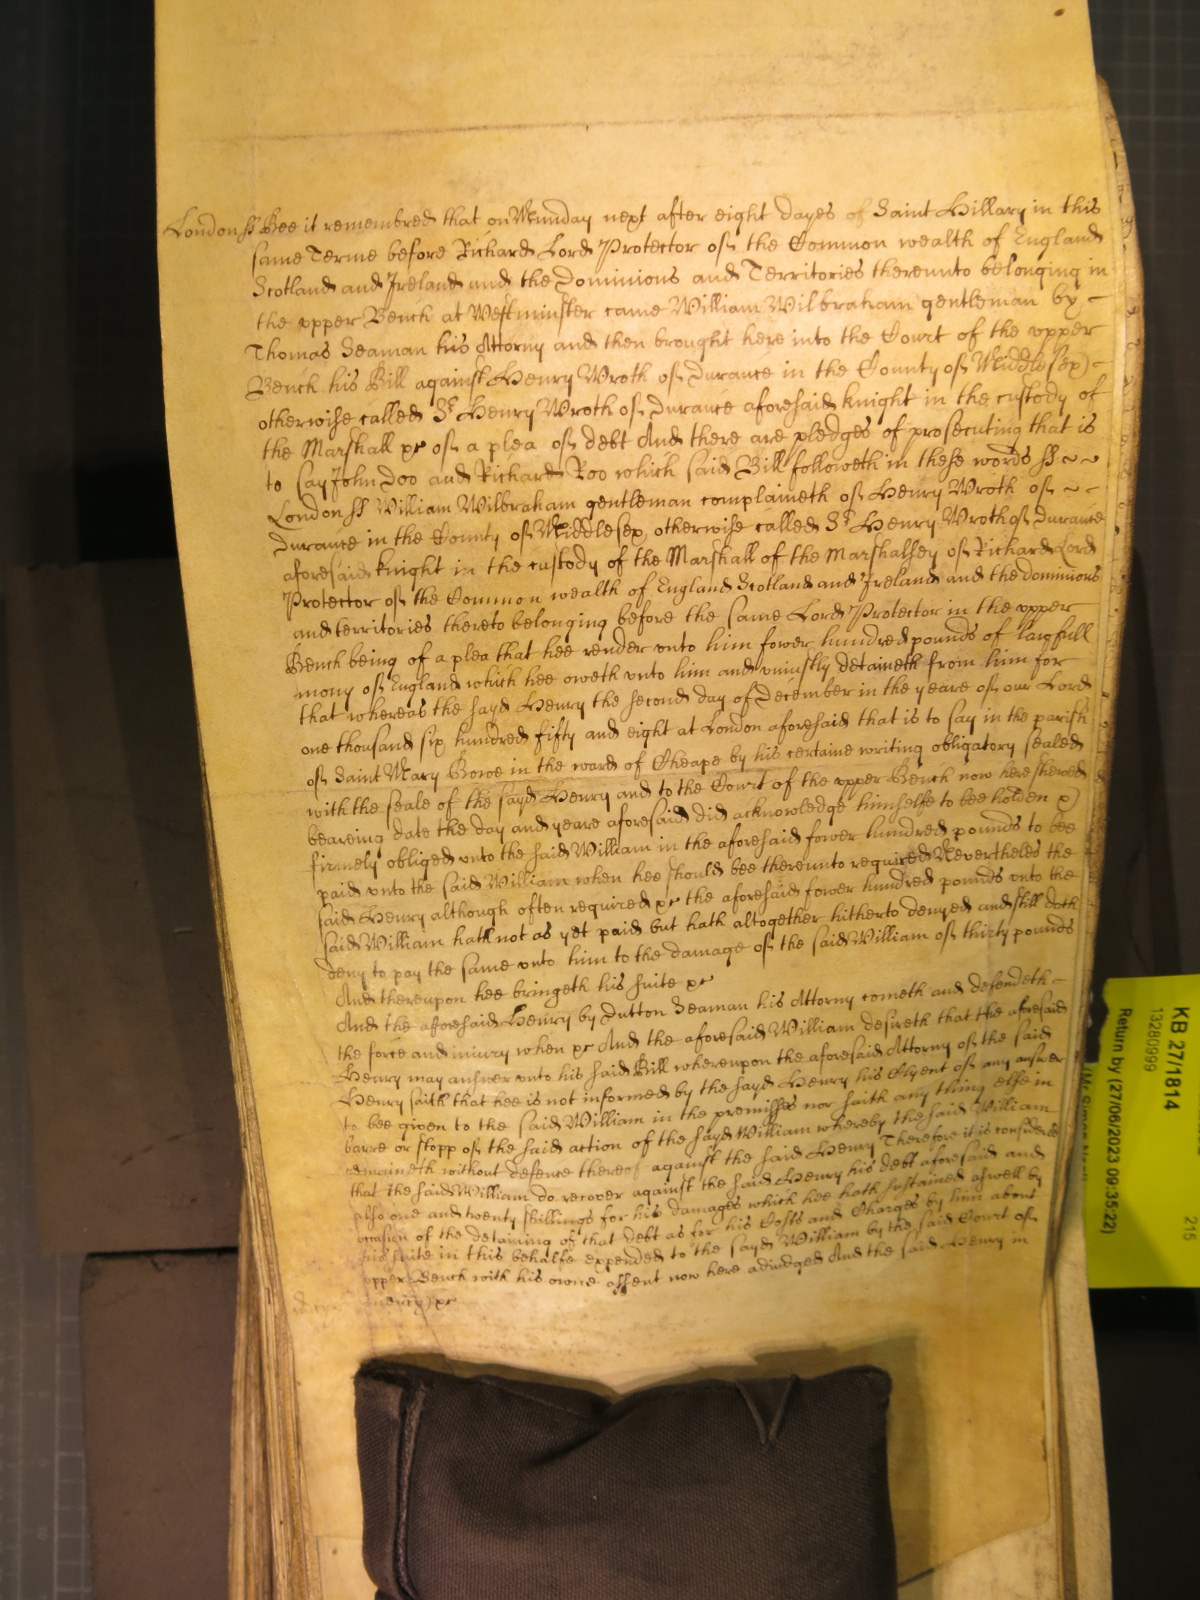 London ss Bee it remembred that on Munday next after eight dayes of Saint Hillary in this
same Terme before Richard Lord Protector of the Common wealth of England
Scotland and Ireland and the Dominions and Territories thereunto belonging in
the vpper Bench at Westminster came William Wilbraham gentleman by
Thomas Seaman his Attorny and then brought here into the Court of the vpper
Bench his Bill against Henry Wroth of Durance in the County of Middlesex
otherwise called Sr Henry Wroth of Durance aforesaid knight in the custody of
the Marshall &c of a plea of debt And there are pledges of prosecuting that is
to say John Doo and Richard Roo which said Bill followeth in these words ss
London ss William Wilbraham gentleman complaineth of Henry Wroth of
Durance in the County of Middlesex otherwise called Sr Henry Wroth of Durance
aforesaid knight in the custody of the Marshall of the Marshalsey of Richard Lord
Protector of the Common wealth of England Scotland and Ireland and the dominions
and territories thereto belonging before the same Lord Protector in the vpper
Bench being of a plea that hee render vnto him fower hundred pounds of lawfull
mony of England which hee oweth vnto him and vniustly detaineth from him for
that whereas the sayd Henry the second day of December in the yeare of our Lord
one thousand six hundred fifty and eight at London aforesaid that is to say in the parish
of Saint Mary Bowe in the ward of Cheape by his certaine writing obligatory sealed
with the seale of the sayd Henry and to the Court of the vpper Bench now here shewed
beareing date the day and yeare aforesaid did acknowledge himselfe to bee holden &
firmely obliged vnto the said William in the aforesaid fower hundred pounds to bee
paid vnto the said William when hee should bee thereunto required Nevertheles the
said Henry although often required &c the aforesaid fower hundred pounds vnto the
said William hath not as yet paid but hath altogether hitherto denyed and still doth
deny to pay the same vnto him to the damage of the said William of thirty pounds
And thereupon hee bringeth his suite &c
And the aforesaid Henry by Dutton Seaman his Attorny cometh and defendeth
the force and iniury when &c And the aforesaid William desireth that the aforesaid
Henry may answer vnto his said Bill whereupon the aforesaid Attorny of the said
Henry saith that hee is not informed by the sayd Henry his Clyent of any answer
to bee given to the said William in the premisses nor saith any thing else in
barre or stopp of the said action of the sayd William whereby the said William
remaineth without defence thereof against the said Henry Therefore it is considered
that the said William do recover against the said Henry his debt aforesaid and
also one and twenty shillings for his damages which hee hath sustained aswell by
occasion of the detaining of that debt as for his Costs and Charges by him about
his suite in this behalfe expended to the sayd William by the said Court of
vpper Bench with his owne assent now here adiudged And the said Henry in
mercy &c
KB 27/1814
13280999
Return by (27/06/2023 09:35:22)
215